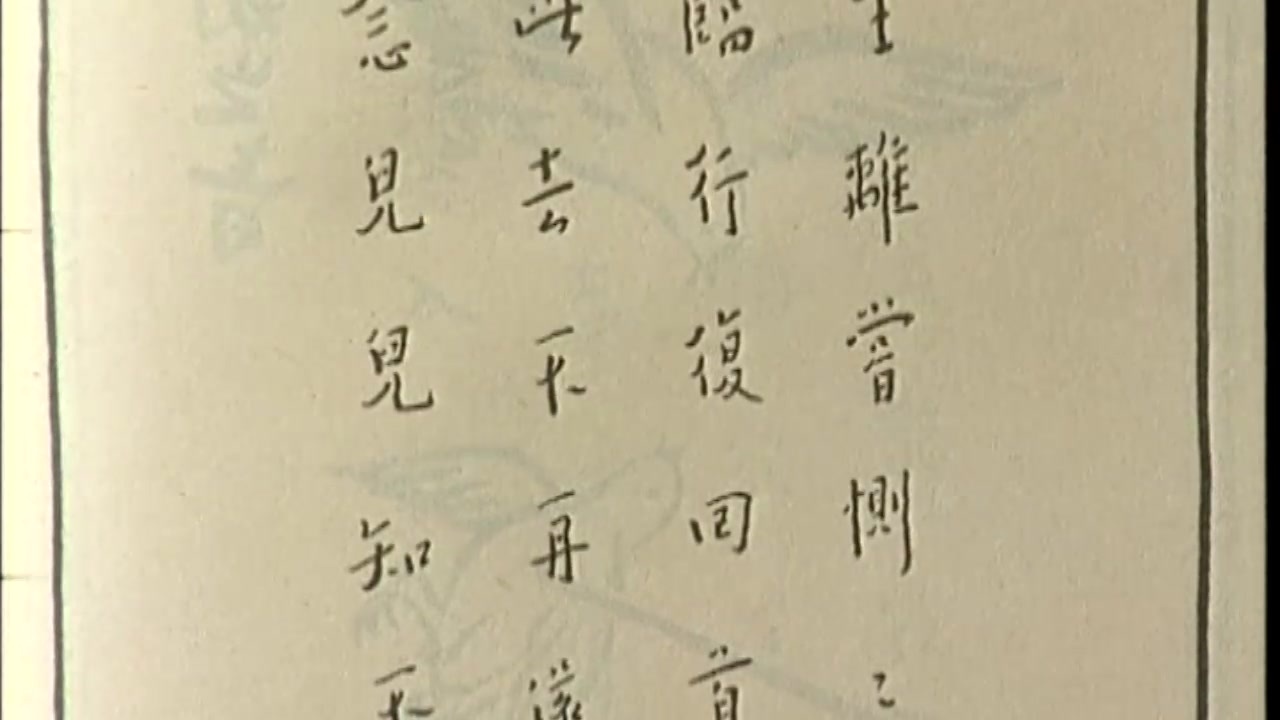 生離嘗惻〻
臨行復回首
此去不再
念兒兒知